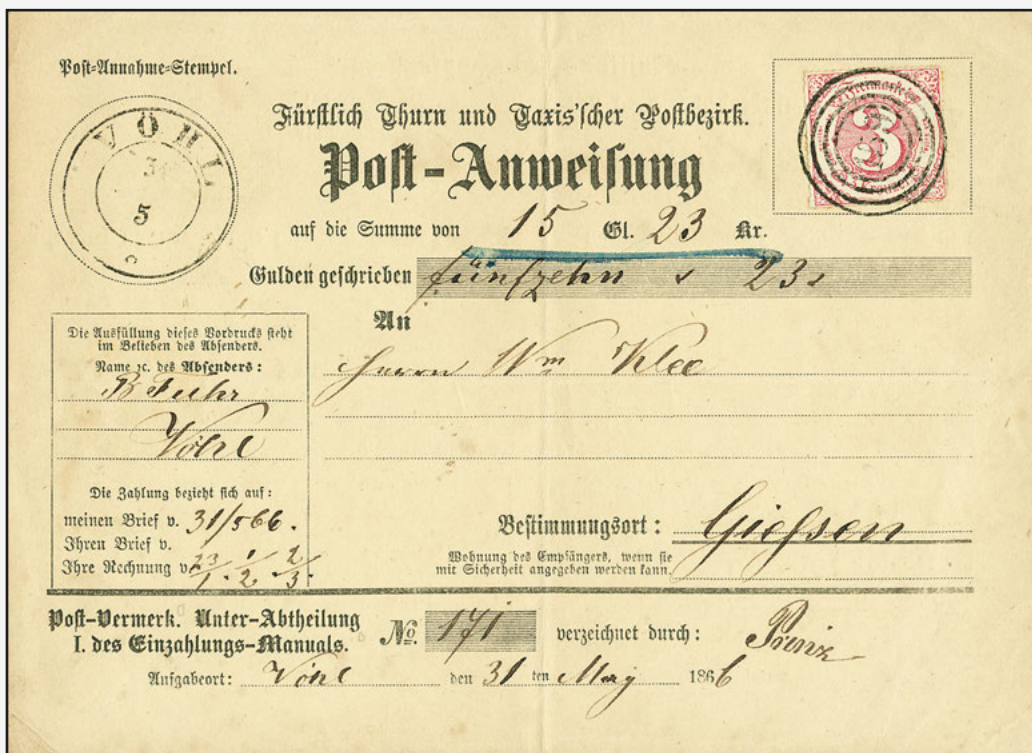 Post-Annahme-Stempel.
VÖHL
31
5
Fürstlich Thurn und Taxis'scher Postbezirk.
Post-Anweisung
auf die Summe von 15 Gl. 23 Kr.
Gulden geschrieben fünfzehn 23
An
Herrn Wm Klee
Die Ausfüllung dieses Vordrucks steht
im Belieben des Absenders.
Name ꝛc. des Absenders:
B Fuhr
Vöhl
Die Zahlung bezieht sich auf:
meinen Brief v. 31/5 66.
Ihren Brief v.
Ihre Rechnung v. 23/1. 1/2. 2/3.
Bestimmungsort: Giessen
Wohnung des Empfängers, wenn sie
mit Sicherheit angegeben werden kann.
Post-Vermerk. Unter-Abtheilung
I. des Einzahlungs-Manuals.
No. 171 verzeichnet durch: Prinz
Aufgabeort: Vöhl den 31 ten May 1866
3
Kreuzer